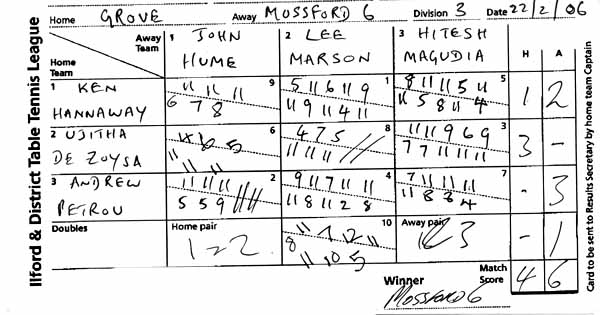 Home GROVE Away MOSSFORD 6 Division 3 Date 22/2/06
Ilford & District Table Tennis League
Away Team 1 JOHN HUME 2 LEE MARSON 3 HITESH MAGUDIA H A
Home Team
1 KEN HANNAWAY 9 1 5 1 2
11 11 11 5 11 6 11 9 8 11 11 5 11
6 7 8 11 9 11 4 11 11 5 8 11 4
2 UJITHA DE ZOYSA 6 8 3 3 -
4 7 5 11 11 9 6 9
11 11 11 11 11 11 7 7 11 11 11
3 ANDREW PETROU 2 4 7 - 3
11 11 11 9 11 7 11 11 7 11 11 11
5 5 9 11 8 11 2 8 11 8 3 4
Doubles Home pair 1-2 10 Away pair 3 - 1
8 11 7 12 11
11 10 5
Winner MOSSFORD 6 Match Score 4 6
Card to be sent to Results Secretary by home team Captain